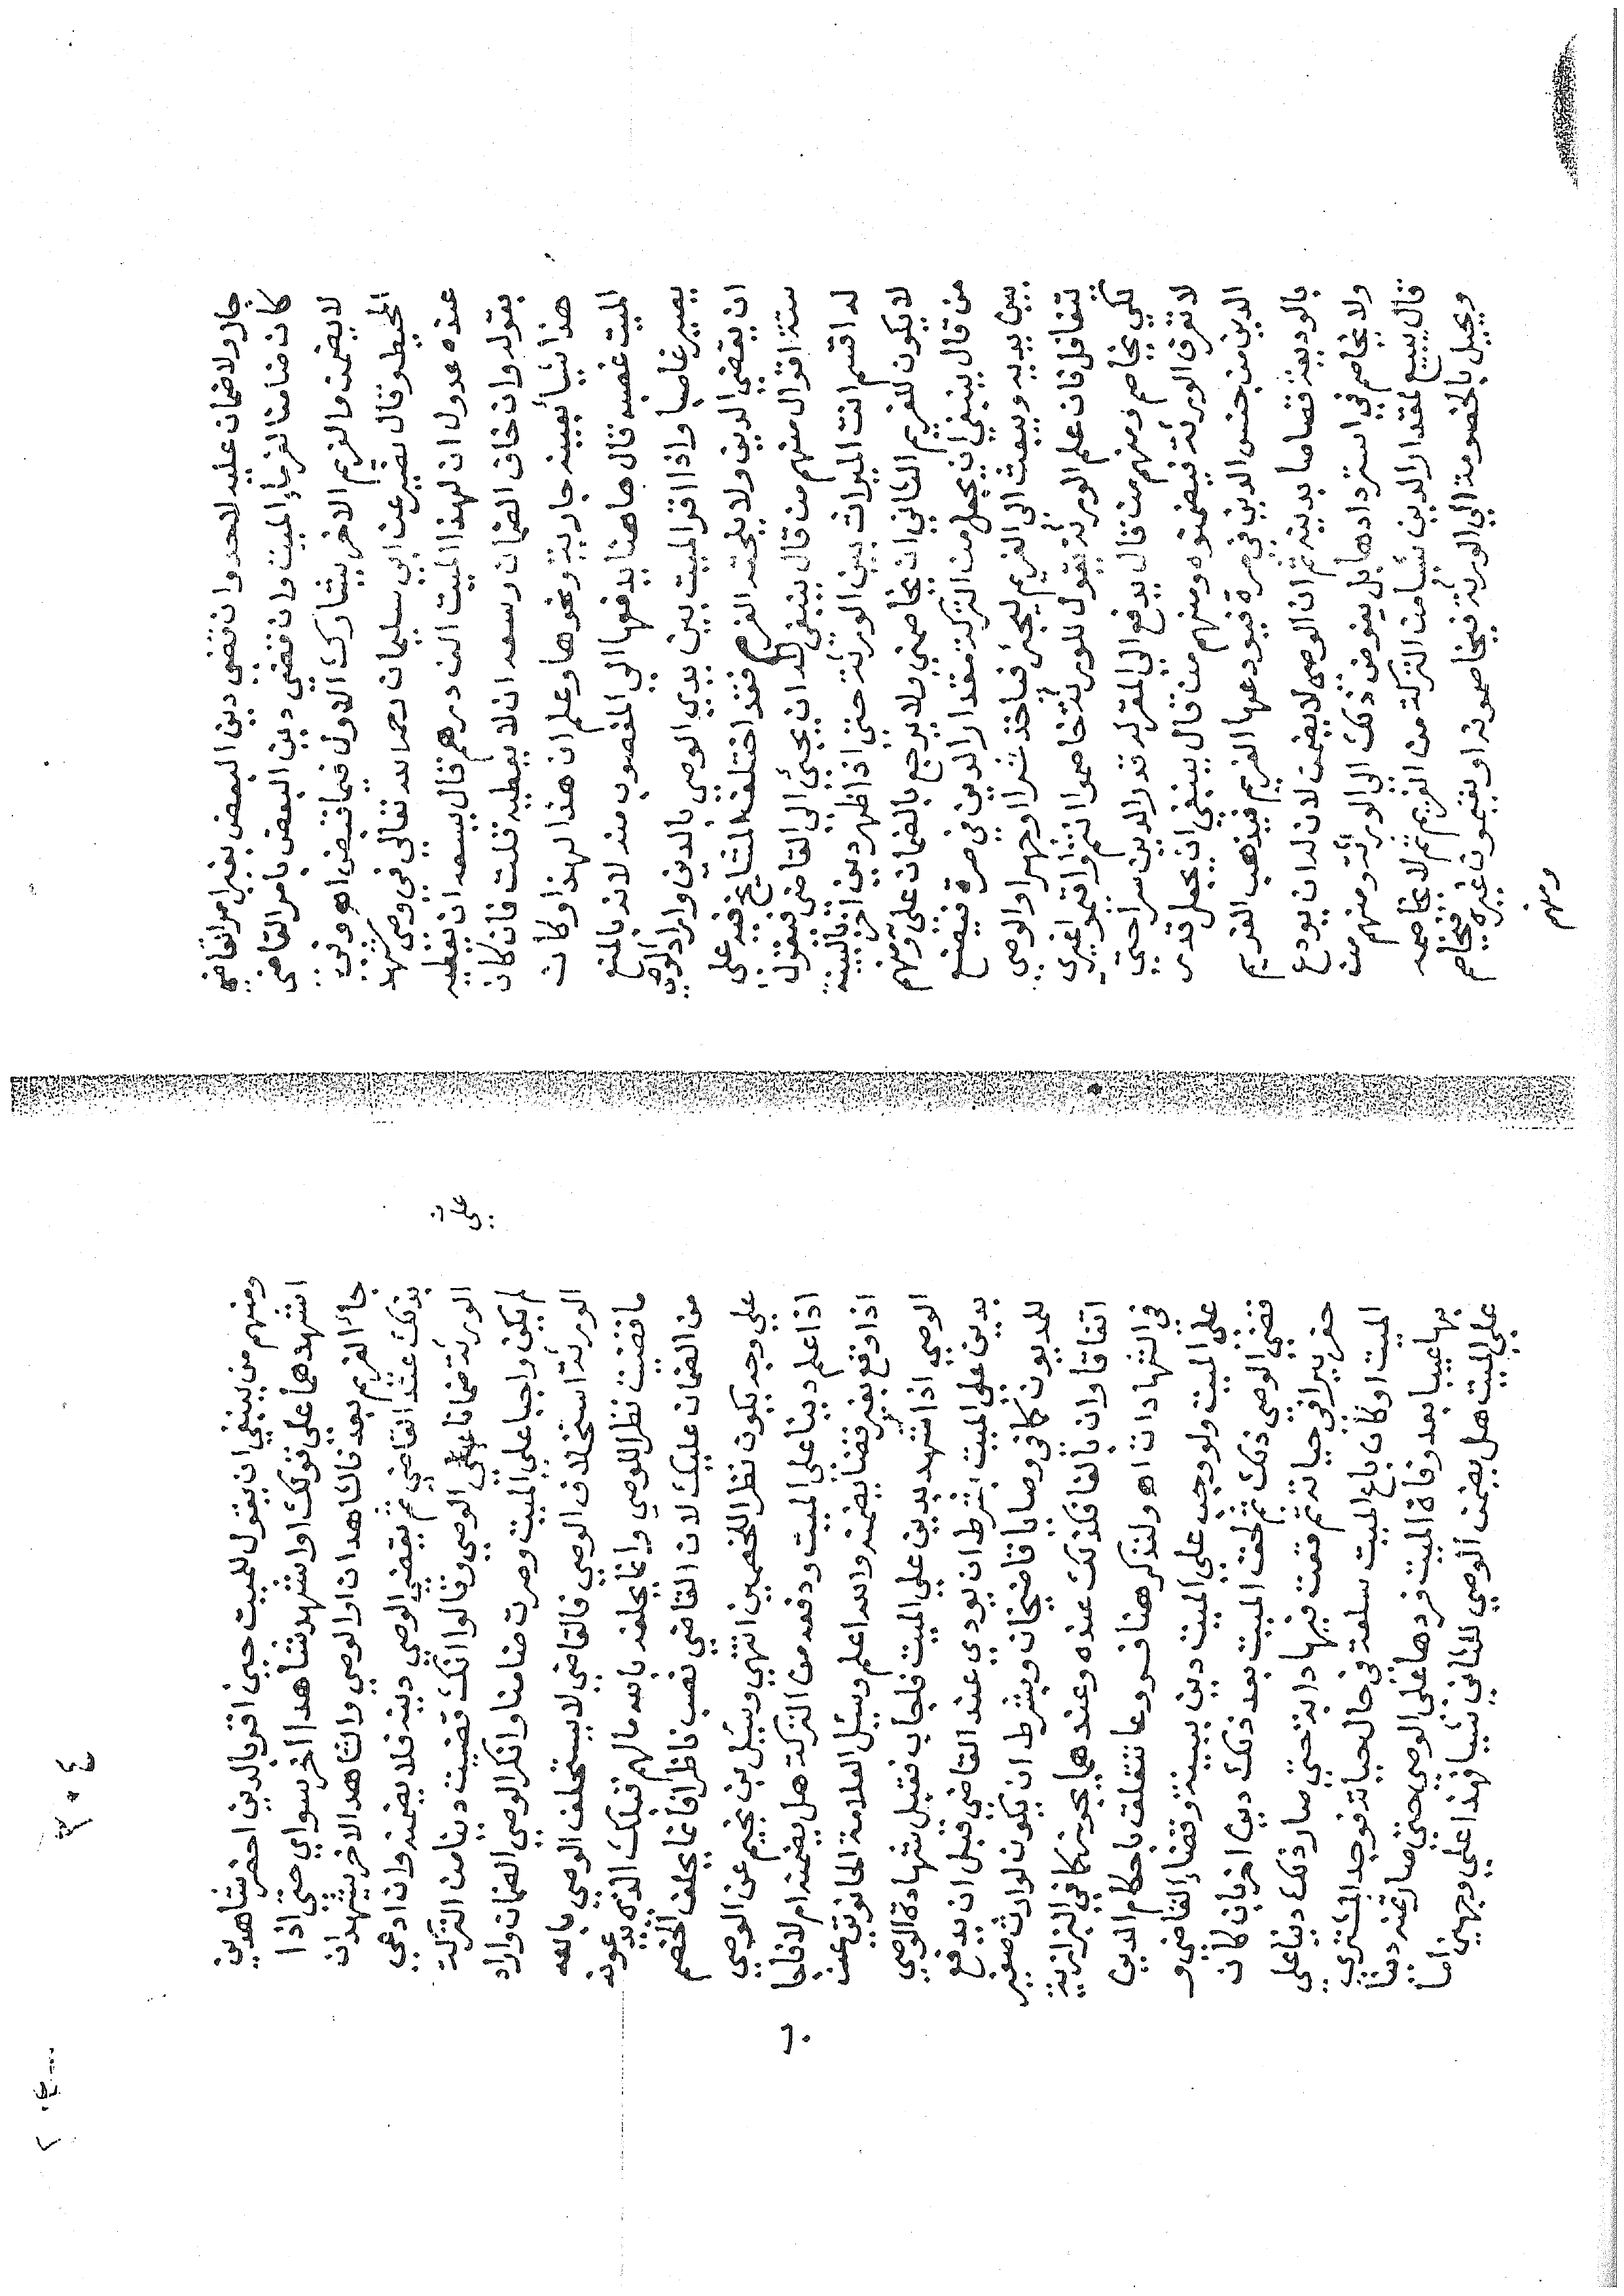 جاز ولا ضمان عليه لاحد وان قضى دين البعض بغير امر القاضى
كان ضامنا لغرماء الميت وان قضى دين البعض بامر القاضى
لا يضمن والغريم الاخر يشارك الاول فيما قبض اه وفى
المحيط وقال نصير عن ابي سليمان رحمه الله تعالى فى وصى شهد
عنده عدول ان لهذا الميت الف درهم قال يسعه ان يعطيه
بقوله وان خاف الضمان وسعه ان لا يعطيه قلت فان كان
هذا شيأ بعينه جارية ونحوها وعلم ان هذا لهذا وكان
الميت غصبه قال هاهنا يدفعها الى المغصوب منه لانه بالمنع
يصير غاصبا واذا اقر الميت بين يدي الوصي بالدين واراد الوصى
ان يقضى الدين ولا يلحقه الغرم فقد اختلف المشايخ فيه على
ستة اقوال منهم من قال ينبغى له ان يجئ الى القاضى فيقول
له اقسم انت الميراث بين الورثة حتى اذا ظهر دين اخر بالبينة
لا يكون للغريم الثاني ان يخاصمني ولا يرجع بالضمان علي ومنهم
من قال ينبغي ان يجعل من التركة مقدار الدين في صرة فيضع
بين يديه ويبعث الى الغريم ليجئ فياخذ سرا او جهرا والوصى
تتغافل فان علم الورثة يقول للورثة خاصموا انتم او اقيموا غيرى
لكي يخاصم ومنهم من قال يدفع الى المقر له قدر الدين سراحتى
لا تعرف الورثة فيضمنوه ومنهم من قال ينبغي ان يجعل قدر
الدين من جنس الدين في صرة فيودعها الغريم فيذهب الغريم
بالوديعة قصاصا بدينه ثم ان الوصى لا يضمن لان له ان يودع
ولا يخاصم في استردادها بل يفوض ذلك الى الورثة ومنهم من
قال يبيع لمقدار الدين شيأ من التركة من الغريم ثم لا يخاصمه
ويحيل بالخصومة الى الورثة فيخاصمونه او يقيمون غيره فيخاصم
ومنهم
ومنهم من ينبغي ان يقول للميت حين اقر بالدين احضر شاهدين
اشهدهما على قولك او اشهد شاهدا اخر سواي حتى اذا
جاء الغريم بعد فالشاهدان او الوصي والشاهد الاخر يشهدان
بذلك عند القاضي ثم يقضي الوصي دينه فلا يضمنه وان ادعى
الورثة ضمانا على الوصي وقالوا انك قضيت دينا من التركة
على
لم يكن واجبا على الميت وصرت ضامنا وانكر الوصي الضمان واراد
الورثة استحلاف الوصي فالقاضي لا يستحلف الوصي بالله
ما قضيت نظرا للوصي وانما يحلفه بالله ما لهم قبلك الذي يدعونه
من الضمان عليك لان القاضي نصب ناظرا فانما يحلف الخصم
علي وجه يكون نظرا للخصمين انتهي وسئل بن نجيم عن الوصي
اذا علم دينا على الميت ودفعه من التركة هل يضمنه ام لا فاجاب
اذا وقع بغير قضا يضمنه والله اعلم وسئل العلامة الحانوتي عن
الوصي اذا شهد بدين علي الميت فاجاب فقبل شهادة الوصي
بدين على الميت بشرط ان يودي عند القاضي قبل ان يدفع
للمديون كما في وصايا قاضيخان وبشرط ان يكون الوارث صغير
اتفاقا وان بالغا فكذلك عنده وعندهما يجوز كما في البزازية
في الشهادات اه ولنذكر هنا فروعا تتعلق باحكام الدين
علي الميت ولو وجب علي الميت دين ببينة وقضاء القاضي و
قضي الوصي ذلك ثم لحق الميت بعد ذلك دين اخر بان كان
حفر بيرا في حياته ثم وقعت فيها دابة حتي صار ذلك دينا على
الميت او كان باع الميت سلعة في حال حياته فوجد المشتري
بها عيبا بعد وفاة الميت فردها على الوصي حتي صار ثمنه دينا
على الميت هل يضمن الوصي للثاني شيأ فهذا علي وجهين اما
٦٠